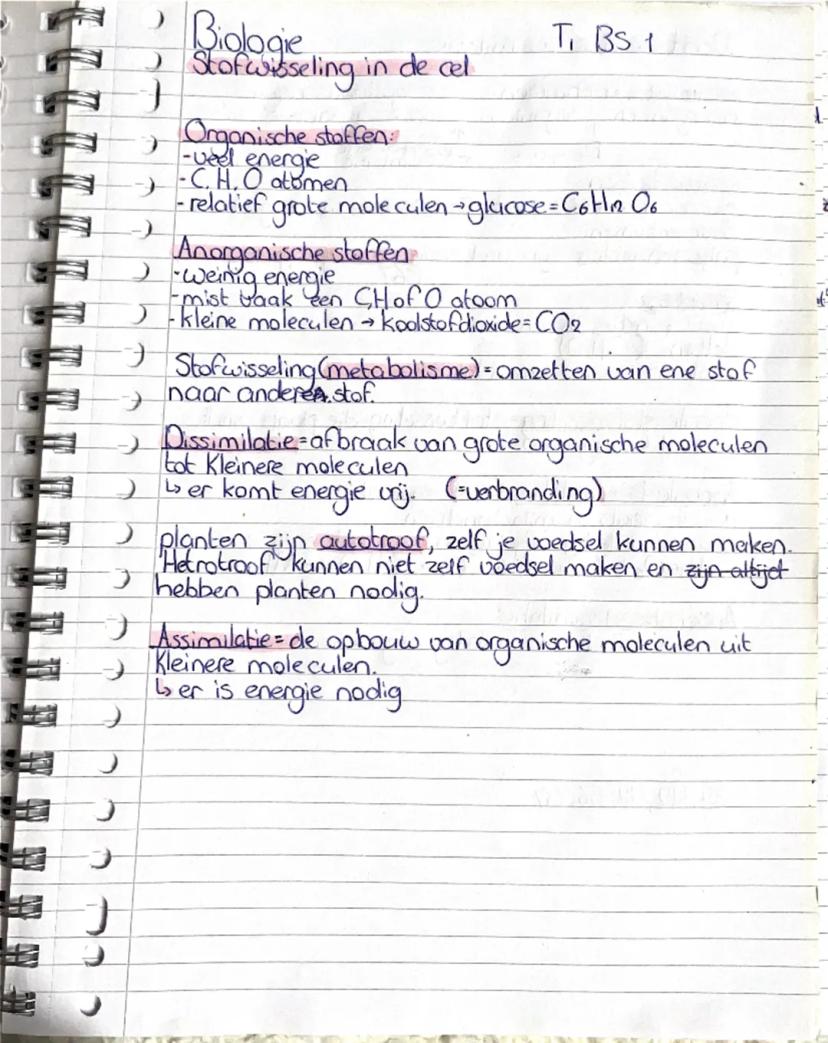 Biologie T1 BS 1
Stofwisseling in de cel
Organische stoffen:
-veel energie
-C, H, O atomen
-relatief grote moleculen → glucose = C6H12O6
Anorganische stoffen
-weinig energie
-mist vaak een C, H of O atoom
-kleine moleculen → koolstofdioxide = CO2
Stofwisseling (metabolisme) = omzetten van ene stof
naar andere stof.
Dissimilatie = afbraak van grote organische moleculen
tot kleinere moleculen
↳ er komt energie vrij. (=verbranding)
planten zijn autotroof, zelf je voedsel kunnen maken.
Hetrotroof kunnen niet zelf voedsel maken en zijn altijd
hebben planten nodig.
Assimilatie = de opbouw van organische moleculen uit
kleinere moleculen.
↳ er is energie nodig